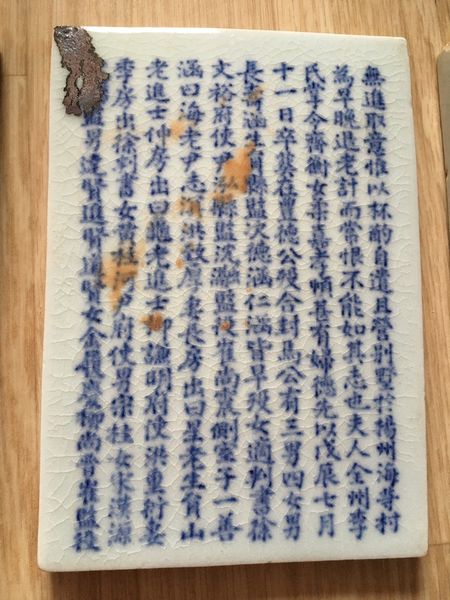 無進取意惟以杯酌自遣且營別墅於楊州海等村
為早晚退老計而常恨不能如其志也夫人全州李
氏掌令齊衡女柔嘉孝順甚有婦德先以戊辰七月
十一日卒葬在豊德公歿合封焉公有三男四女男
長 涵生員縣監次德涵仁涵皆早歿女適判書徐
文裕府使尹弘 縣監沈 縣監崔尚 側室子一善
涵曰海老尹志 洪啟 妻長房出曰星老生員山
老進士仲房出曰龜老進士 謙明府使洪重衍妻
季房出徐判書女 府使男宗桂女宋漢源
男達賢進賢 賢女金 柳尚晉崔監役